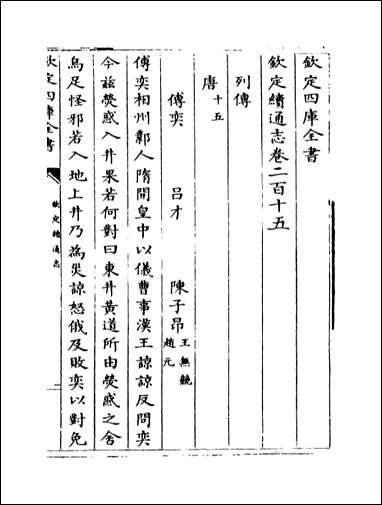 欽定四庫全書
欽定續通志卷二百十五
列傳
唐十五
傅奕 呂才 陳子昂 王無競 趙元
傅奕相州鄴人隋開皇中以儀曹事漢王諒諒反問奕
今兹熒惑入井果若何對曰東井黃道所由熒惑之舍
烏足怪邪若入地上井乃為災諒怒俄及敗奕以對免
欽定四庫全書
欽定續通志